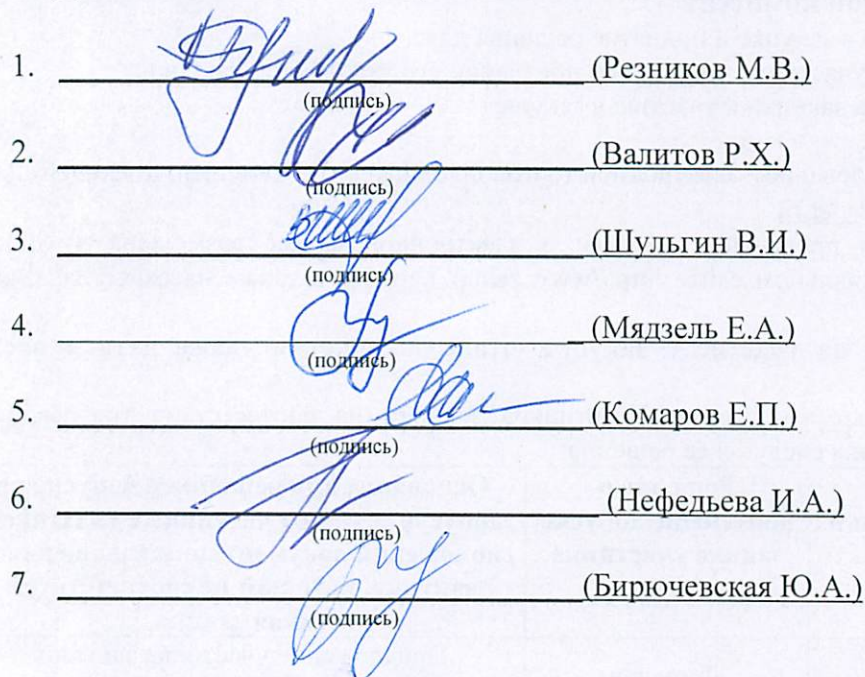 1. (Резников М.В.)
(подпись)
2. (Валитов Р.Х.)
(подпись)
3. (Шульгин В.И.)
(подпись)
4. (Мядзель Е.А.)
(подпись)
5. (Комаров Е.П.)
(подпись)
6. (Нефедьева И.А.)
(подпись)
7. (Бирючевская Ю.А.)
(подпись)